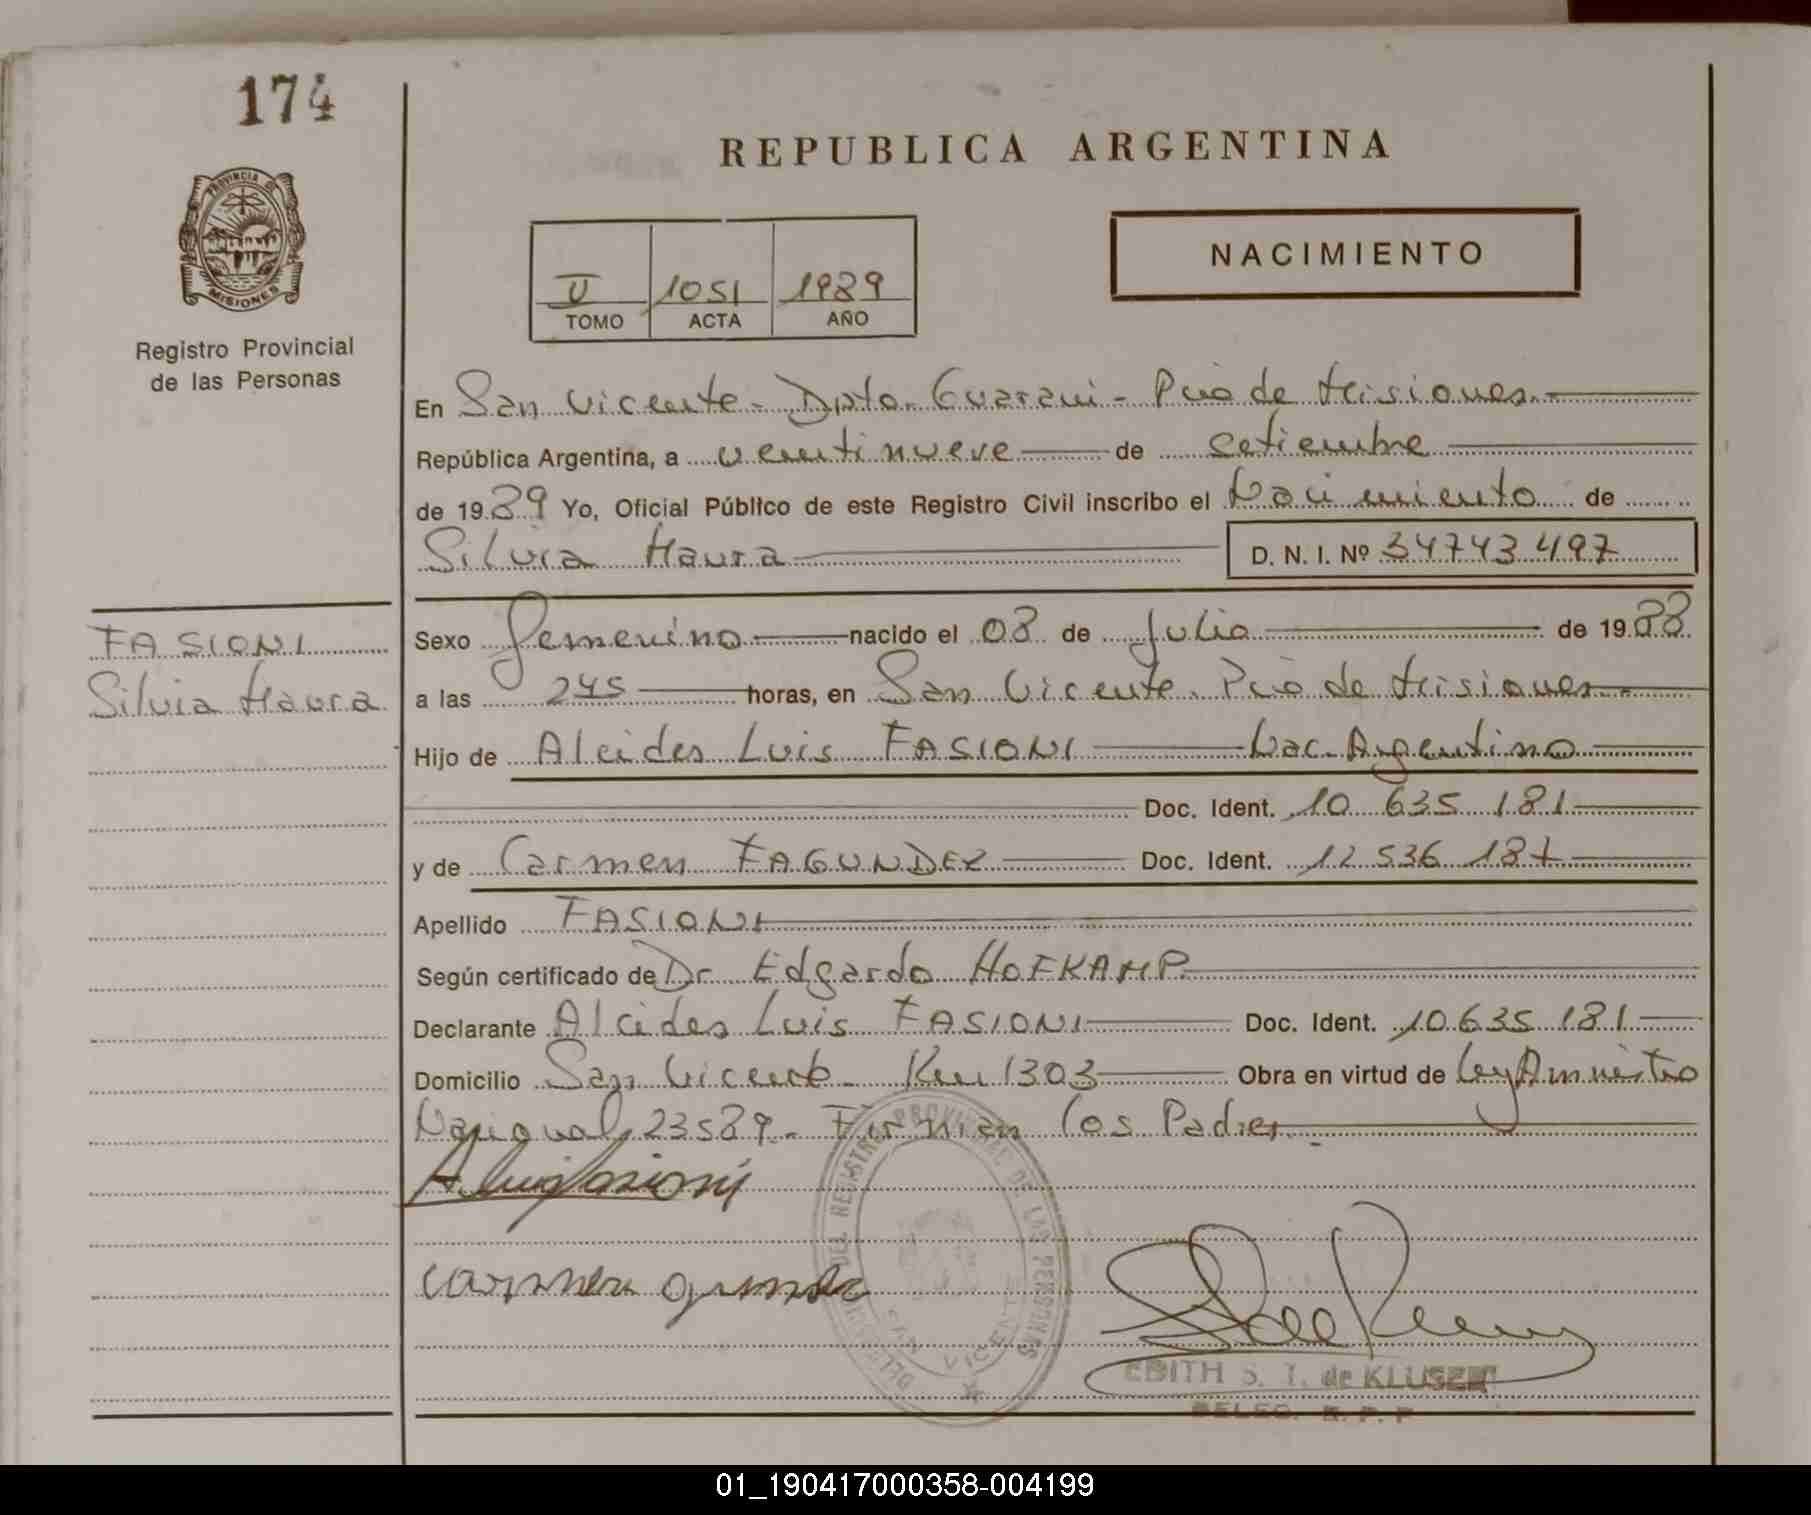 174
REPUBLICA ARGENTINA
PROVINCIA DE
MISIONES
Registro Provincial
de las Personas
V 1051 1989
TOMO ACTA AÑO
NACIMIENTO
En San Vicente - Dpto. Guarani - Pcia de Misiones.
República Argentina, a veintinueve de setiembre
de 1989 Yo, Oficial Público de este Registro Civil inscribo el Nacimiento de
Silvia Maura D. N. I. Nº 34743497
FASIONI
Silvia Maura
Sexo femenino nacido el 08 de Julio de 1988
a las 245 horas, en San Vicente. Pcia de Misiones.
Hijo de Alcides Luis FASIONI Nac. Argentino
Doc. Ident. 10 635 181
y de Carmen FAGUNDEZ Doc. Ident. 12 536 187
Apellido FASIONI
Según certificado de Dr. Edgardo HOFKAMP
Declarante Alcides Luis FASIONI Doc. Ident. 10 635 181
Domicilio San Vicente Km 1303 Obra en virtud de Ley Amnistia
Nacional 23589. Firman los Padres.
DEL REGISTRO PROVINCIAL DE LAS PERSONAS
SAN VICENTE
Carmen
EDITH S. T. de KLUSER
DELEG. R. P. P
01_190417000358-004199